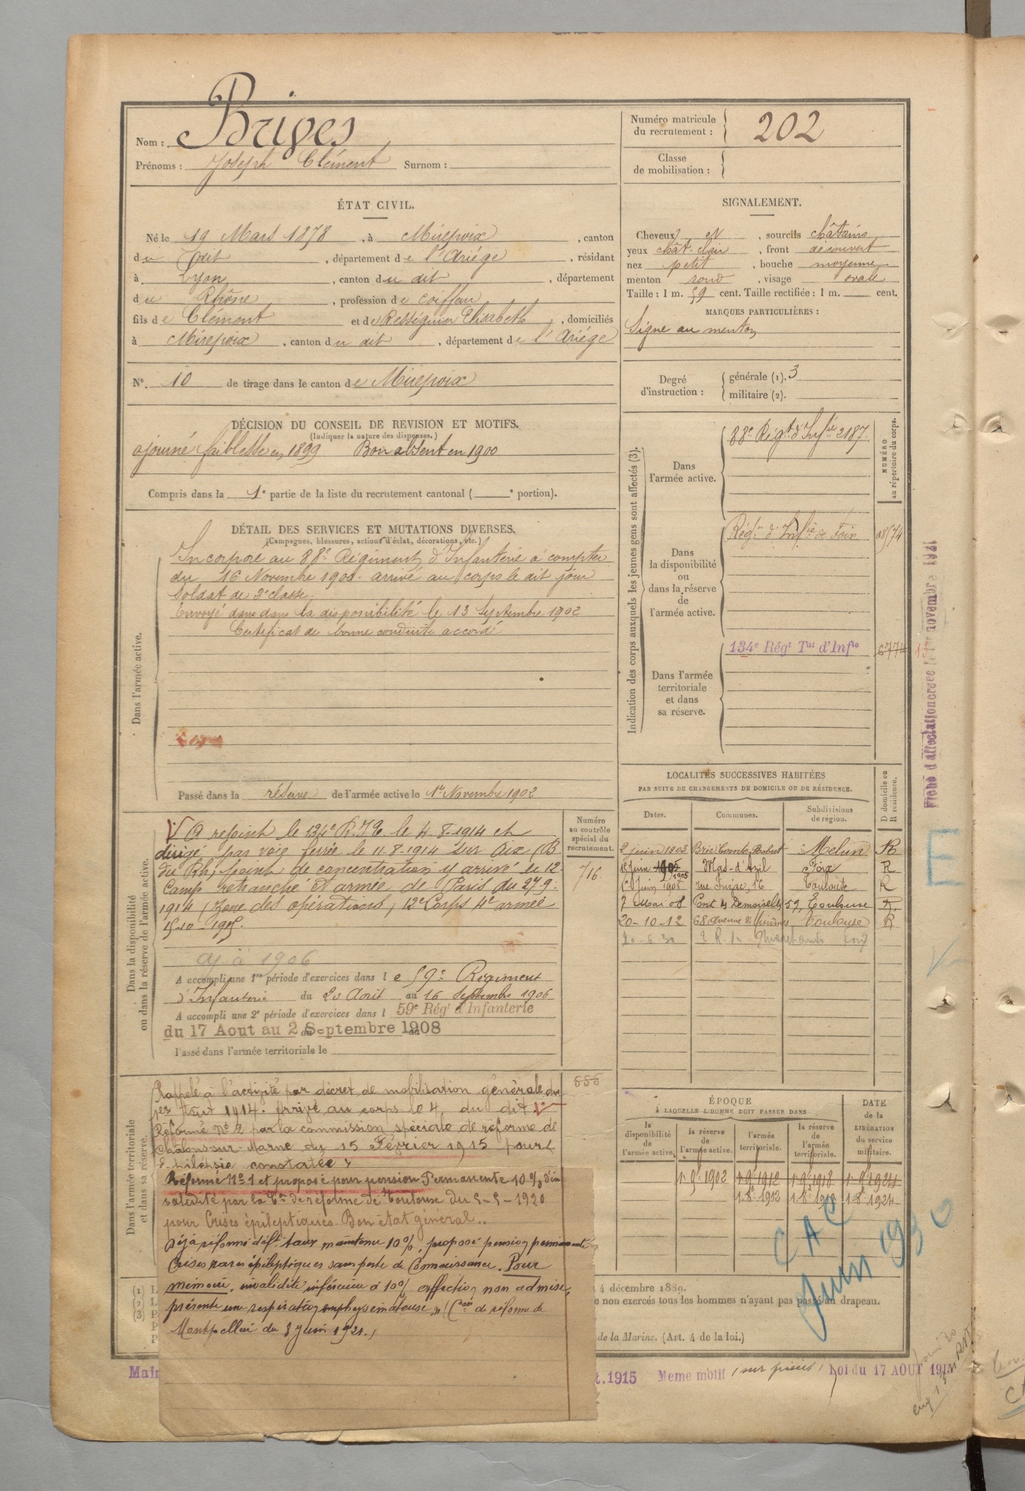 Nom : Brives
Prénoms : Joseph Clément Surnom :
Numéro matricule du recrutement : 202
Classe de mobilisation :
ÉTAT CIVIL.
Né le 19 Mars 1878, à Mirepoix, canton
du dit, département de l'Ariége, résidant
à Lyon, canton du dit, département
du Rhône, profession de coiffeur
fils de Clément et de Rességuier Elisabeth, domiciliés
à Mirepoix, canton du dit, département de l'Ariége
N° 10 de tirage dans le canton de Mirepoix
SIGNALEMENT.
Cheveux et, sourcils châtains
yeux chât. clair, front découvert
nez petit, bouche moyenne
menton rond, visage ovale
Taille : 1 m. 59 cent. Taille rectifiée : 1 m. cent.
MARQUES PARTICULIÈRES :
Signe au menton
Degré d'instruction : générale (1). 3
militaire (2).
DÉCISION DU CONSEIL DE REVISION ET MOTIFS.
(Indiquer la nature des dispenses.)
ajourné faiblesse en 1899 Bon absent en 1900
Compris dans la 1e partie de la liste du recrutement cantonal ( e portion).
DÉTAIL DES SERVICES ET MUTATIONS DIVERSES.
(Campagnes, blessures, actions d'éclat, décorations, etc.)
Dans l'armée active.
Incorporé au 88e Régiment d'Infanterie à compter
du 16 Novembre 1901 arrivé au corps le dit jour
Soldat de 2e classe.
Envoyé dans dans la disponibilité le 13 Septembre 1902
Certificat de bonne conduite accordé
Passé dans la réserve de l'armée active le 1er Novembre 1902
Indication des corps auxquels les jeunes gens sont affectés (3).
NUMÉRO au répertoire du corps.
Dans l'armée active.
88e Régt d'Infie 2187
Dans la disponibilité ou dans la réserve de l'armée active.
Régt d'Infie de Foix
Dans l'armée territoriale et dans sa réserve.
134e Régt Tal d'Infie
Fiche d'affectation créée le 1er novembre 1921
LOCALITÉS SUCCESSIVES HABITÉES
PAR SUITE DE CHANGEMENTS DE DOMICILE OU DE RÉSIDENCE.
Dates. Communes. Subdivisions de région. D domicile ou R résidence.
2 juin 1903 Brie Comte Robert Melun R
Mas-d'Azil Foix R
juin 1905 Toulouse R
2 Mars 08 Pont des Demoiselles 52, Toulouse R
20-10-12 68 Avenue de Toulouse R
Dans la disponibilité ou dans la réserve de l'armée active.
Numéro au contrôle spécial du recrutement.
716
A rejoint le 134e R.I.T. le 4-8-1914 et
dirigé par voie ferrée le 11.8.1914 sur Aix (B
du Rh) point de concentration y arrivé le 12
Camp retranché et armée de Paris du 27 9
1914 (Zone des opérations), 12e Corps 4e armée
15-10-1915.
Aj à 1906
A accompli une 1re période d'exercices dans le 59e Régiment
d'Infanterie du 20 Août au 16 Septembre 1906
A accompli une 2e période d'exercices dans l 59e Rég d'Infanterie
du 17 Aout au 2 Septembre 1908
Passé dans l'armée territoriale le
Dans l'armée territoriale et dans sa réserve.
Rappelé à l'activité par décret de mobilisation générale du
1er Août 1914. Arrivé au corps le 4, du dit
Réformé N° 2 par la commission spéciale de réforme de
Châlons sur Marne du 15 Février 1915 pour
Epilepsie constatée
Réformé N° 1 et proposé pour pension Permanente 10 % d'in
validité par la Con de réforme de Toulouse du 5-5-1920
pour Crises épileptiques. Bon état général..
Déjà réformé déft taux maintenu 10%. proposé pension permanente
Crises rares épileptiques sans perte de Connaissance. Pour
mémoire, invalidité inférieure à 10% affection non admise,
présente une respiration emphysémateuse, (Con de réforme de
Montpellier du 3 juin 1921.)
ÉPOQUE
À LAQUELLE L'HOMME DOIT PASSER DANS
DATE de la LIBÉRATION du service militaire.
la disponibilité de l'armée active. la réserve de l'armée active. l'armée territoriale. la réserve de l'armée territoriale.
1-9-1902 1-9-1912 1-9-1918 1-9-1924
1-8-1912 1-8-1918 1-8-1924
CAC
Juin 1930
4 décembre 1889.
e non exercés tous les hommes n'ayant pas passé au drapeau.
de la Marine. (Art. 4 de la loi.)
Main
.1915 Meme motif (sur pièces) Loi du 17 AOUT 1915